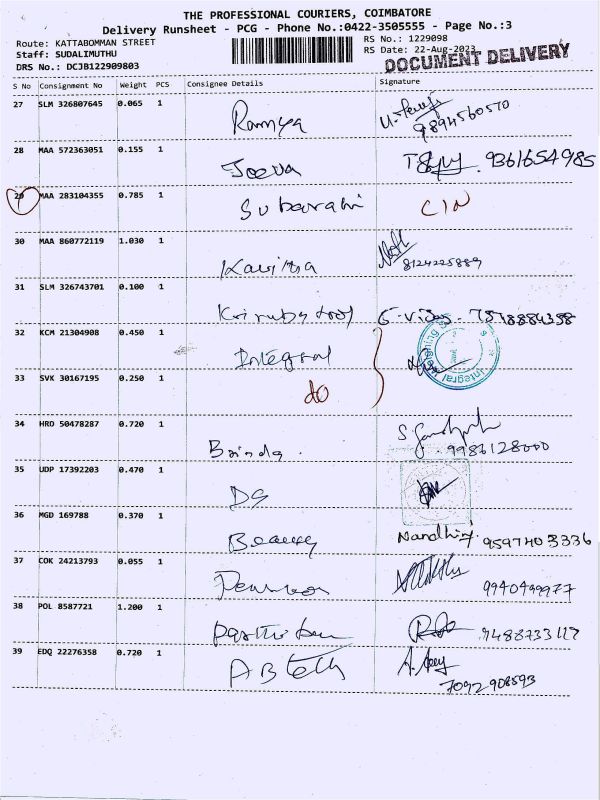 THE PROFESSIONAL COURIERS, COIMBATORE
Delivery Runsheet - PCG - Phone No.:0422-3505555 - Page No.:3
Route: KATTABOMMAN STREET
RS No.: 1229098
Staff: SUDALIMUTHU
RS Date: 22-Aug-2023
DRS No.: DCJB122909803
DOCUMENT DELIVERY
S No Consignment No Weight PCS Consignee Details Signature
27 SLM 326807645 0.065 1 Ramya
9894560570
28 MAA 572363051 0.155 1 Jeeva 9361654985
29 MAA 283104355 0.785 1 Subarabi CIN
30 MAA 860772119 1.030 1 Kavitha
8124225889
31 SLM 326743701 0.100 1 7598884358
32 KCM 21304908 0.450 1 Integral
33 SVK 30167195 0.250 1 do
34 HRD 50478287 0.720 1 Brinda.
9986128000
35 UDP 17392203 0.470 1 DG
36 MGD 169788 0.370 1 Nandhini 9597403336
37 COK 24213793 0.055 1 9940499977
38 POL 8587721 1.200 1 9488733117
39 EDQ 22276358 0.720 1 ABTeth
7092908593